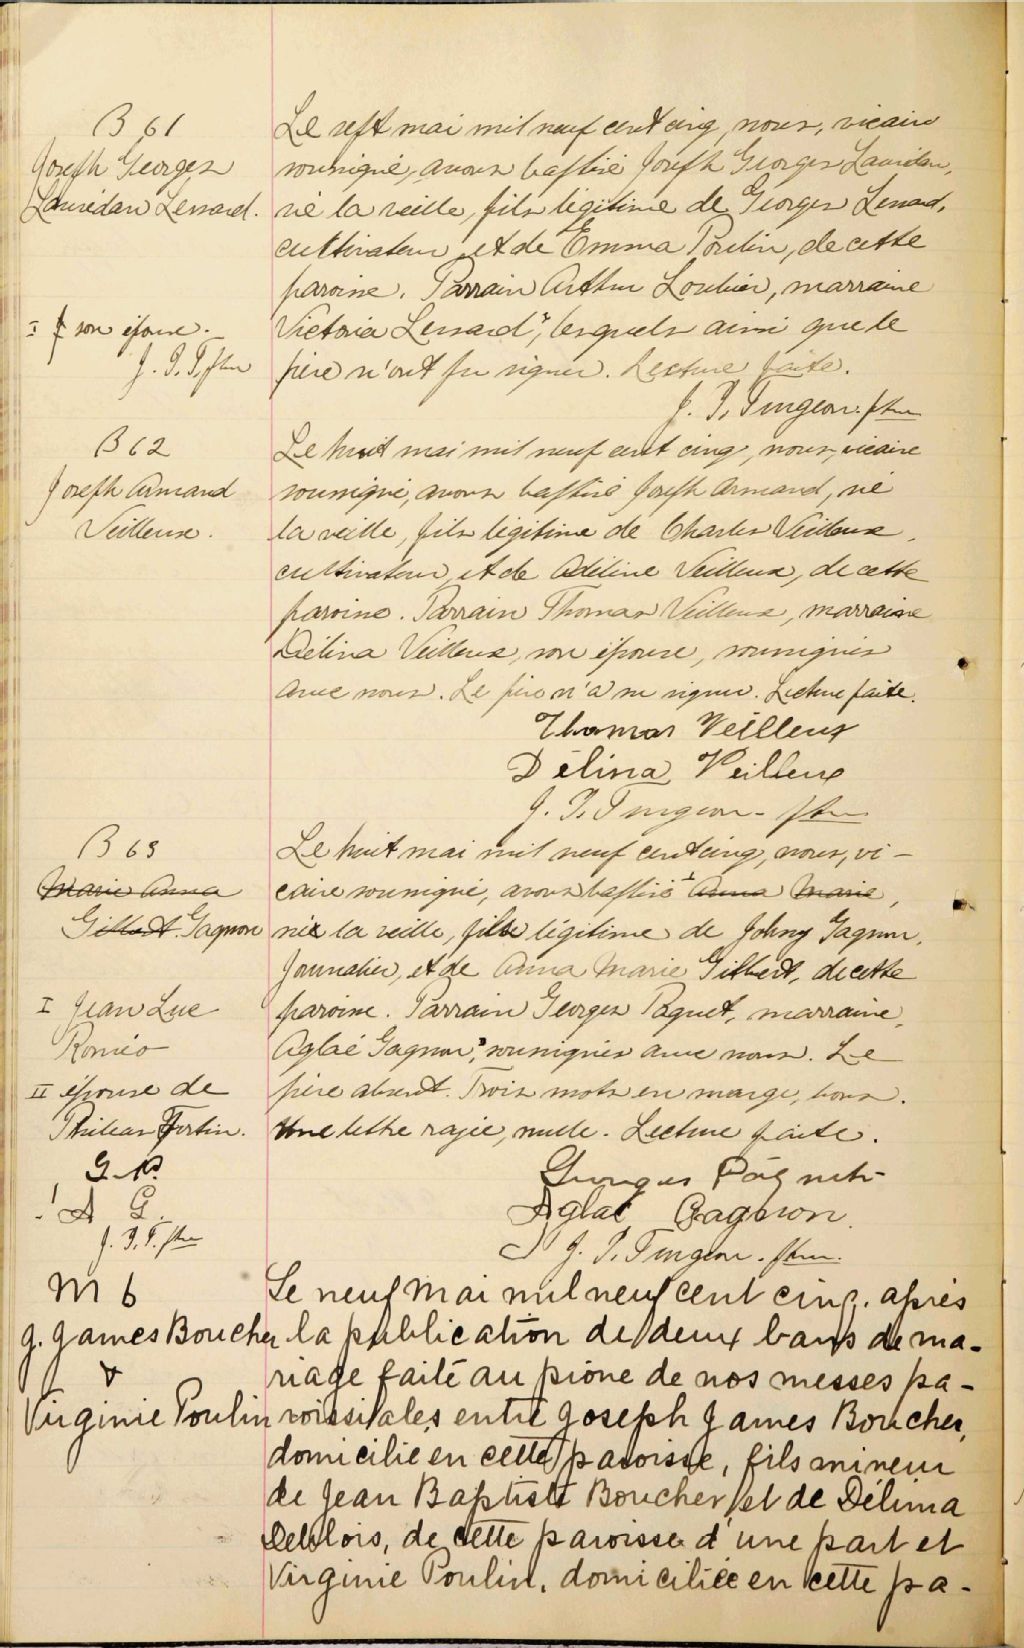 B 61
Joseph Georges
Lauridan Lessard.
I son épouse.
J. P. T. ptre
Le sept mai mil neuf cent cinq, nous, vicaire
soussigné, avons baptisé Joseph Georges Lauridan,
né la veille, fils légitime de Georges Lessard,
cultivateur, et de Emma Poulin, de cette
paroisse. Parrain Arthur Loubier, marraine
Victoria Lessard I, lesquels ainsi que le
père n'ont pu signer. Lecture faite.
J. P. Turgeon. ptre
B 62
Joseph Armand
Veilleux.
Le huit mai mil neuf cent cinq, nous, vicaire
soussigné, avons baptisé Joseph Armand, né
la veille, fils légitime de Charles Veilleux,
cultivateur, et de Adéline Veilleux, de cette
paroisse. Parrain Thomas Veilleux, marraine
Délina Veilleux, son épouse, soussignés
avec nous. Le père n'a su signer. Lecture faite.
Thomas Veilleux
Délina Veilleux
J. P. Turgeon - ptre
B 63
Marie Anna
Gilbert Gagnon
I Jean Luc
Roméo
II épouse de
Philéas Fortin.
G. P.
A G.
J. P. T. ptre
Le huit mai mil neuf cent cinq, nous, vi-
caire soussigné, avons baptisé I Anna Marie,
née la veille, fils légitime de Johny Gagnon,
journalier, et de Anna Marie Gilbert, de cette
paroisse. Parrain Georges Paquet, marraine,
Aglaé Gagnon II, soussignés avec nous. Le
père absent. Trois mots en marge, bons.
Une lettre rayée, nulle. Lecture faite.
Georges Paquet
Aglaé Gagnon
J. P. Turgeon. ptre.
M 6
J. James Boucher
&
Virginie Poulin
Le neuf Mai mil neuf cent cinq. après
la publication de deux bans de ma-
riage faite au prône de nos messes pa-
roissiales entre Joseph James Boucher,
domicilié en cette paroisse, fils mineur
de Jean Baptiste Boucher et de Délima
Deblois, de cette paroisse d'une part et
Virginie Poulin, domiciliée en cette pa-